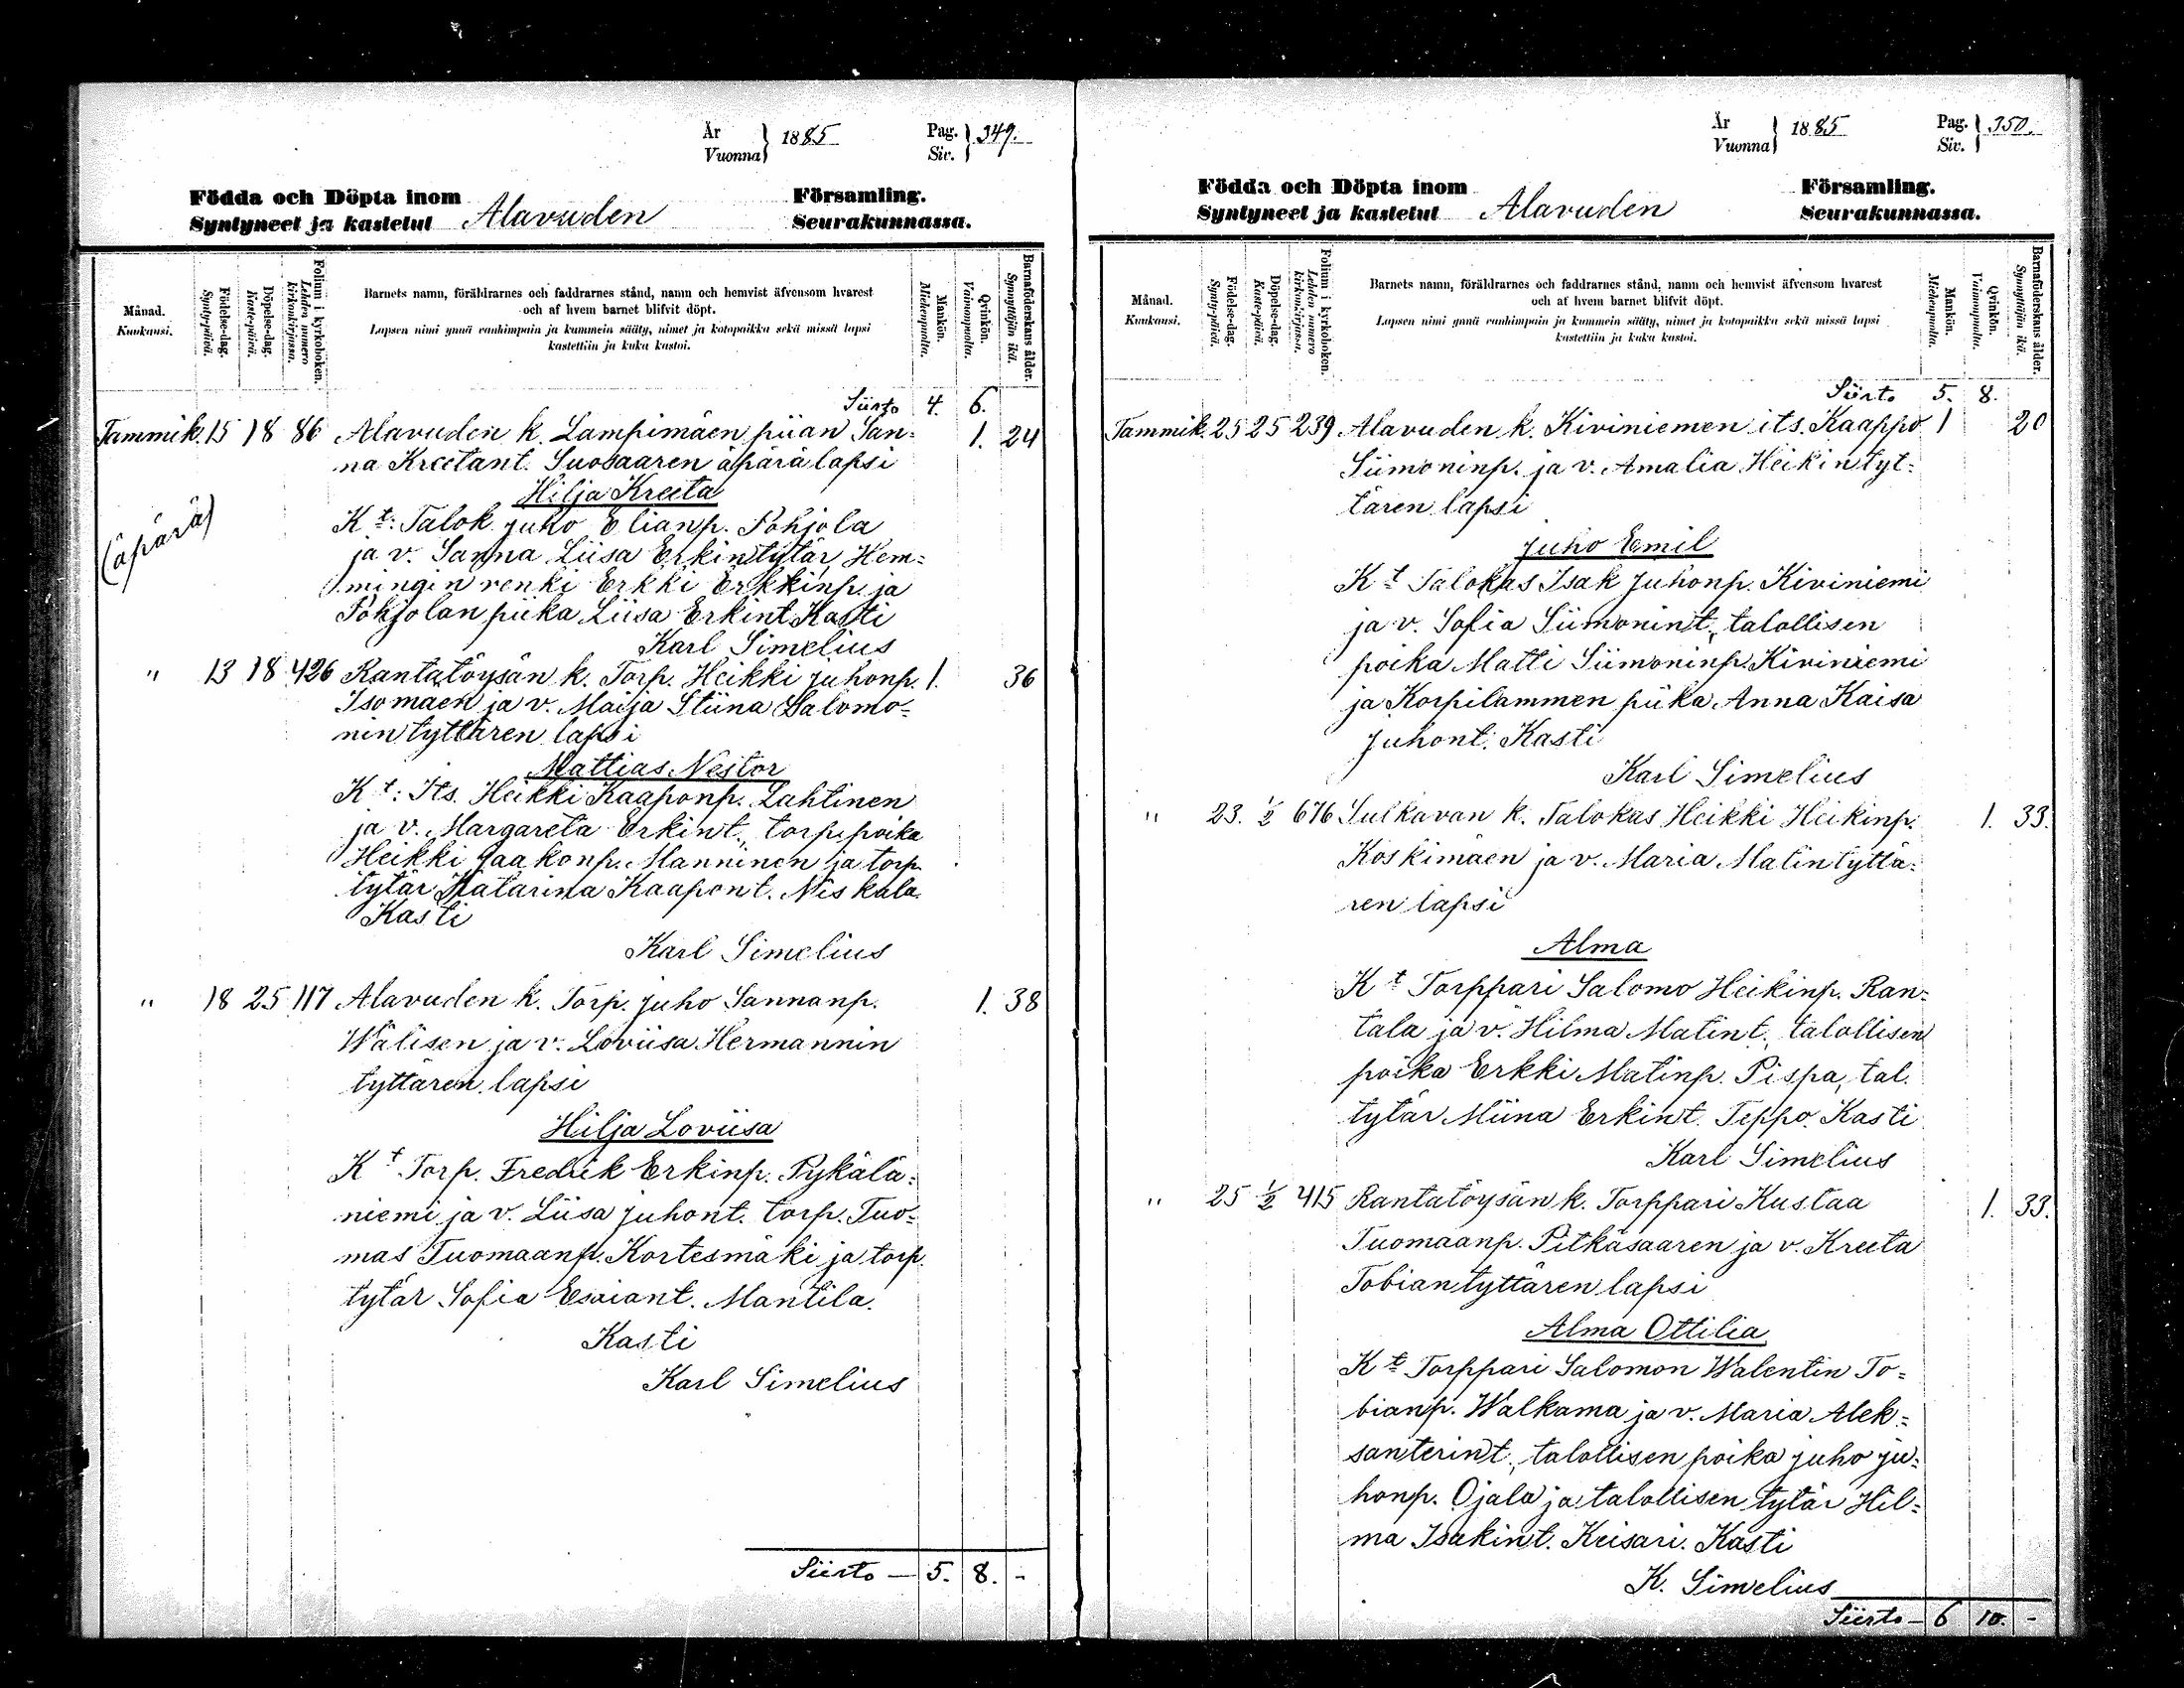 År
Vuonna } 1885 Pag.
Siv. } 349.
Födda och Döpta inom Församling.
Syntyneet ja kastetut Alavuden Seurakunnassa.
Månad.
Kuukausi.
Födelse-dag.
Synty-päivä.
Döpelse-dag.
Kaste-päivä.
Folium i kyrkoboken.
Lehden numero kirkonkirjassa.
Barnets namn, föräldrarnes och faddrarnes stånd, namn och hemvist äfvensom hvarest
och af hvem barnet blifvit döpt.
Lapsen nimi ynnä vanhimpain ja kummein sääty, nimet ja kotopaikka sekä missä lapsi
kastettiin ja kuka kastoi.
Mankön.
Miehenpuolta.
Qvinkön.
Vaimonpuolta.
Barnaföderskans ålder.
Synnyttäjän ikä.
Siirto 4. 6.
Tammik. 15 18 86 Alavuden k. Lampimäen piian San= 1. 24
na Kreetant. Suosaaren äpärä lapsi
Hilja Kreeta
(äpärä)
Kt: Talok Juho Elianp. Pohjola
ja v. Sanna Liisa Erkintytär, Hem=
mingin renki Erkki Erkkinp. ja
Pohjolan piika Liisa Erkint. Kasti
Karl Simelius
" 13 18 426 Rantatöysän k. Torp. Heikki Juhonp. 1. 36
Isomäen ja v. Maija Stiina Salomo=
nintyttären lapsi
Mattias Nestor
Kt: Its. Heikki Kaaponp. Lahtinen
ja v. Margareta Erkint., torp. poika
Heikki Jaakonp. Manninen ja torp.
tytär Katarina Kaapont. Niskala.
Kasti
Karl Simelius
" 18 25 117 Alavuden k. Torp. Juho Sannanp. 1. 38
Wälisen ja v. Loviisa Hermannin
tyttären lapsi
Hilja Loviisa
Kt Torp. Fredrik Erkinp. Pykälä=
niemi ja v. Liisa Juhont. torp. Tuo=
mas Tuomaanp. Kortesmäki ja torp.
tytär Sofia Esaiant. Mantila.
Kasti
Karl Simelius
Siirto — 5. 8. -
År
Vuonna } 1885 Pag.
Siv. } 350.
Födda och Döpta inom Församling.
Syntyneet ja kastetut Alavuden Seurakunnassa.
Månad.
Kuukausi.
Födelse-dag.
Synty-päivä.
Döpelse-dag.
Kaste-päivä.
Folium i kyrkoboken.
Lehden numero kirkonkirjassa.
Barnets namn, föräldrarnes och faddrarnes stånd, namn och hemvist äfvensom hvarest
och af hvem barnet blifvit döpt.
Lapsen nimi ynnä vanhimpain ja kummein sääty, nimet ja kotopaikka sekä missä lapsi
kastettiin ja kuka kastoi.
Mankön.
Miehenpuolta.
Qvinkön.
Vaimonpuolta.
Barnaföderskans ålder.
Synnyttäjän ikä.
Siirto 5. 8.
Tammik. 25 25 239 Alavuden k. Kiviniemen its. Kaappo 1 20
Siimoninp. ja v. Amalia Heikintyt=
tären lapsi
Juho Eemil
Kt Talokas Isak Juhonp. Kiviniemi
ja v. Sofia Siimonint., talollisen
poika Matti Siimoninp. Kiviniemi
ja Korpilammen piika Anna Kaisa
Juhont. Kasti
Karl Simelius
" 23. 1/2 676 Sulkavan k. Talokas Heikki Heikinp. 1. 33.
Koskimäen ja v. Maria Matintyttä=
ren lapsi
Alma
Kt Torppari Salomo Heikinp. Ran=
tala ja v. Hilma Matint., talollisen
poika Erkki Matinp. Pispa, tal.
tytär Miina Erkint. Teppo. Kasti
Karl Simelius
" 25 1/2 415 Rantatöysän k. Torppari Kustaa 1. 33.
Tuomaanp. Pitkäsaaren ja v. Kreeta
Tobiantyttären lapsi
Alma Ottilia
Kt Torppari Salomon Walentin To=
bianp. Walkama ja v. Maria Alek=
santerint., talollisen poika Juho Ju=
honp. Ojala ja talollisen tytär Hil=
ma Isakint. Keisari. Kasti
K. Simelius
Siirto — 6 10. -